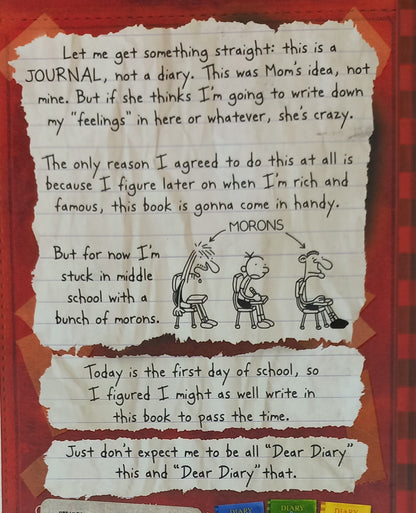 Let me get something straight: this is a
JOURNAL, not a diary. This was Mom's idea, not
mine. But if she thinks I'm going to write down
my "feelings" in here or whatever, she's crazy.
The only reason I agreed to do this at all is
because I figure later on when I'm rich and
famous, this book is gonna come in handy.
MORONS
But for now I'm
stuck in middle
school with a
bunch of morons.
Today is the first day of school, so
I figured I might as well write in
this book to pass the time.
Just don't expect me to be all "Dear Diary"
this and "Dear Diary" that.
DIARY
DIARY
DIARY